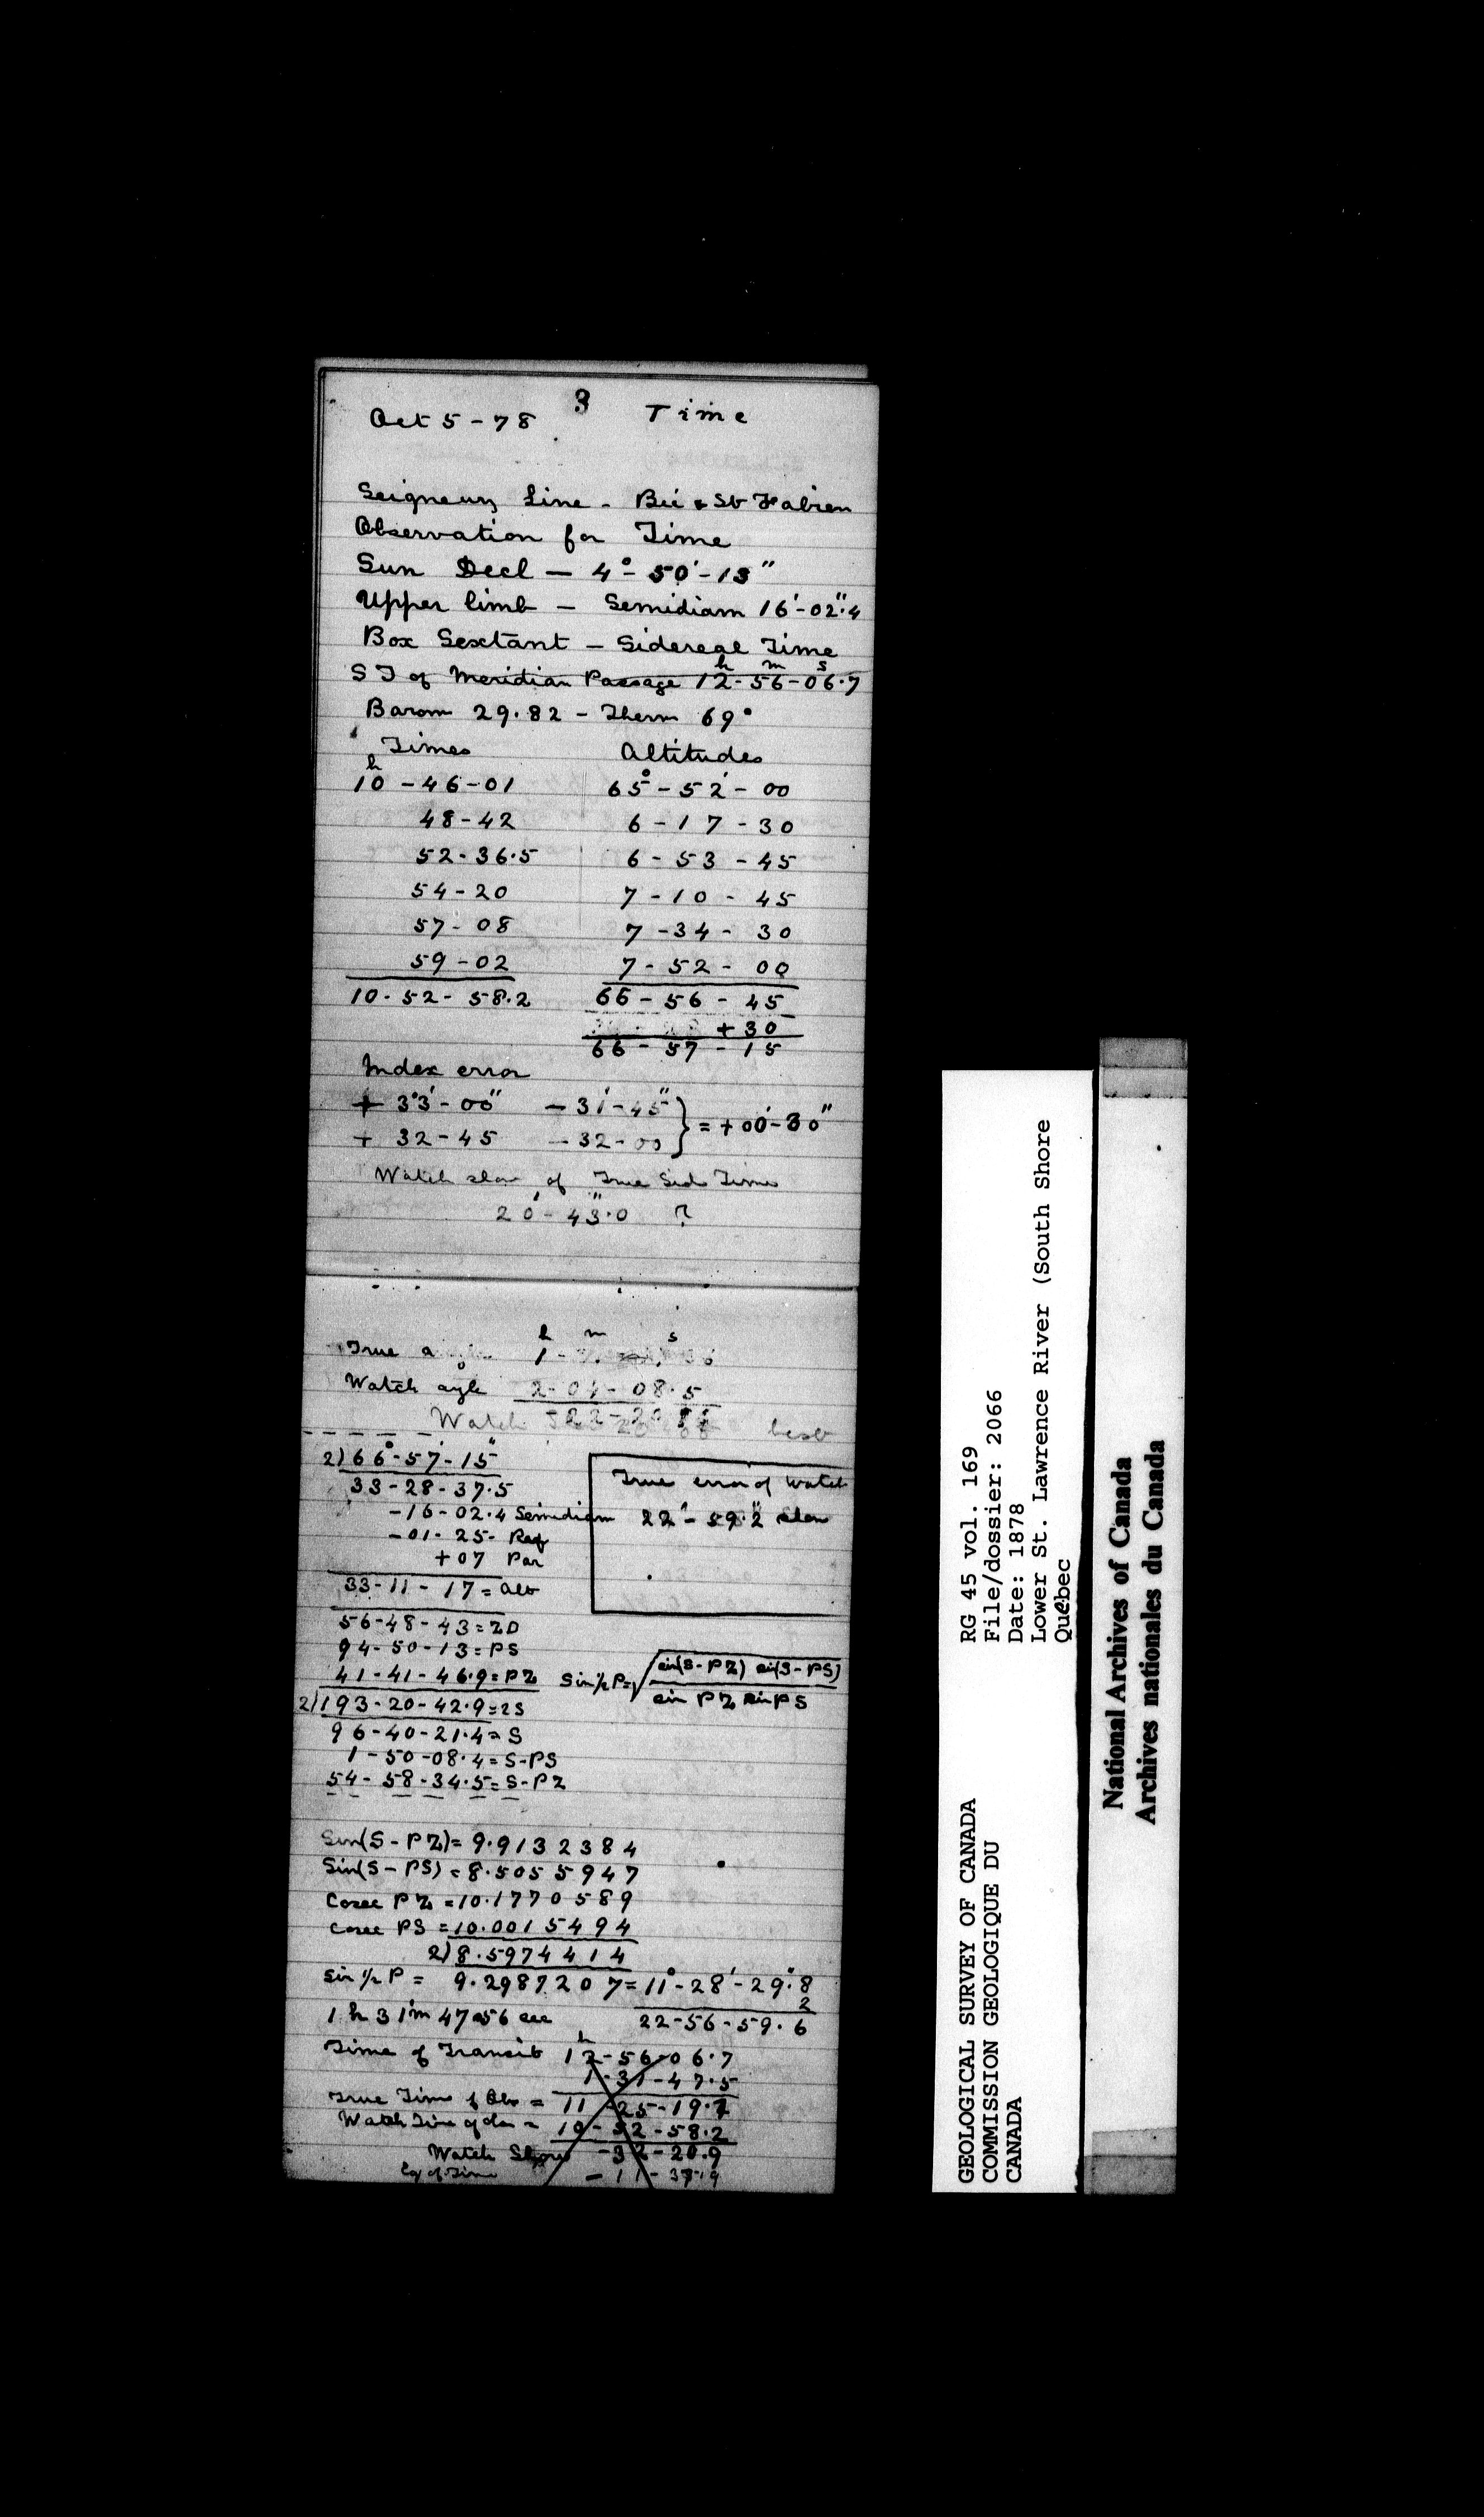 3
Oct 5 - 78 Time
Seigneury Line - Bic & St Fabien
Observation for Time
Sun Decl — 4° - 50' - 13"
Upper limb — Semidiam 16' - 02".4
Box Sextant — Sidereal Time
h m s
S T of Meridian Passage 12 - 56 - 06.7
Barom 29.82 - Therm 69°
Times Altitudes
h
10 - 46 - 01 65° - 52' - 00
48 - 42 6 - 17 - 30
52 - 36.5 6 - 53 - 45
54 - 20 7 - 10 - 45
57 - 08 7 - 34 - 30
59 - 02 7 - 52 - 00
10 - 52 - 58.2 66 - 56 - 45
+ 30
66 - 57 - 15
Index error
+ 33' - 00" - 31' - 45"
+ 32 - 45 - 32 - 00 } = + 00' - 30"
Watch slow of True Sid Time
20' - 43".0 ?
h m s
True 1 -
Watch agle 2 - 04 - 08.5
Watch best
2) 66° - 57' - 15"
33 - 28 - 37.5
- 16 - 02.4 Semidiam
- 01 - 25 - Ref
+ 07 Par
33 - 11 - 17 = alt
True error of Watch
22' - 59".2 slow
56 - 48 - 43 = ZD
94 - 50 - 13 = PS
41 - 41 - 46.9 = PZ
Sin ½ P = √ sin (S - PZ) sin (S - PS)
sin PZ sin PS
2) 193 - 20 - 42.9 = 2S
96 - 40 - 21.4 = S
1 - 50 - 08.4 = S - PS
54 - 58 - 34.5 = S - PZ
Sin (S - PZ) = 9.9132384
Sin (S - PS) = 8.5055947
Cosec PZ = 10.1770589
Cosec PS = 10.0015494
2) 8.5974414
sin ½ P = 9.2987207 = 11° - 28' - 29".8
2
1 h 31 m 47.56 sec 22 - 56 - 59.6
h
Time of Transit 12 - 56 - 06.7
1 - 31 - 47.5
True Time of Obs = 11 - 25 - 19.2
Watch Time of do = 10 - 52 - 58.2
Watch Slow - 32 - 20.9
Eq of Time - 11 - 37.9
GEOLOGICAL SURVEY OF CANADA
COMMISSION GEOLOGIQUE DU
CANADA
RG 45 vol. 169
File/dossier: 2066
Date: 1878
Lower St. Lawrence River (South Shore
Québec
National Archives of Canada
Archives nationales du Canada